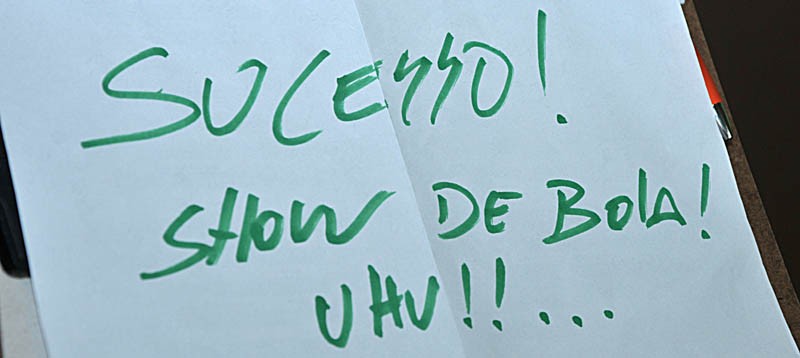 SUCESSO!
SHOW DE BOlA!
UHU!!...